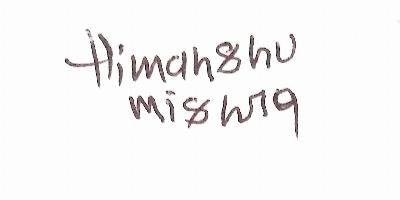 Himanshu
mishra